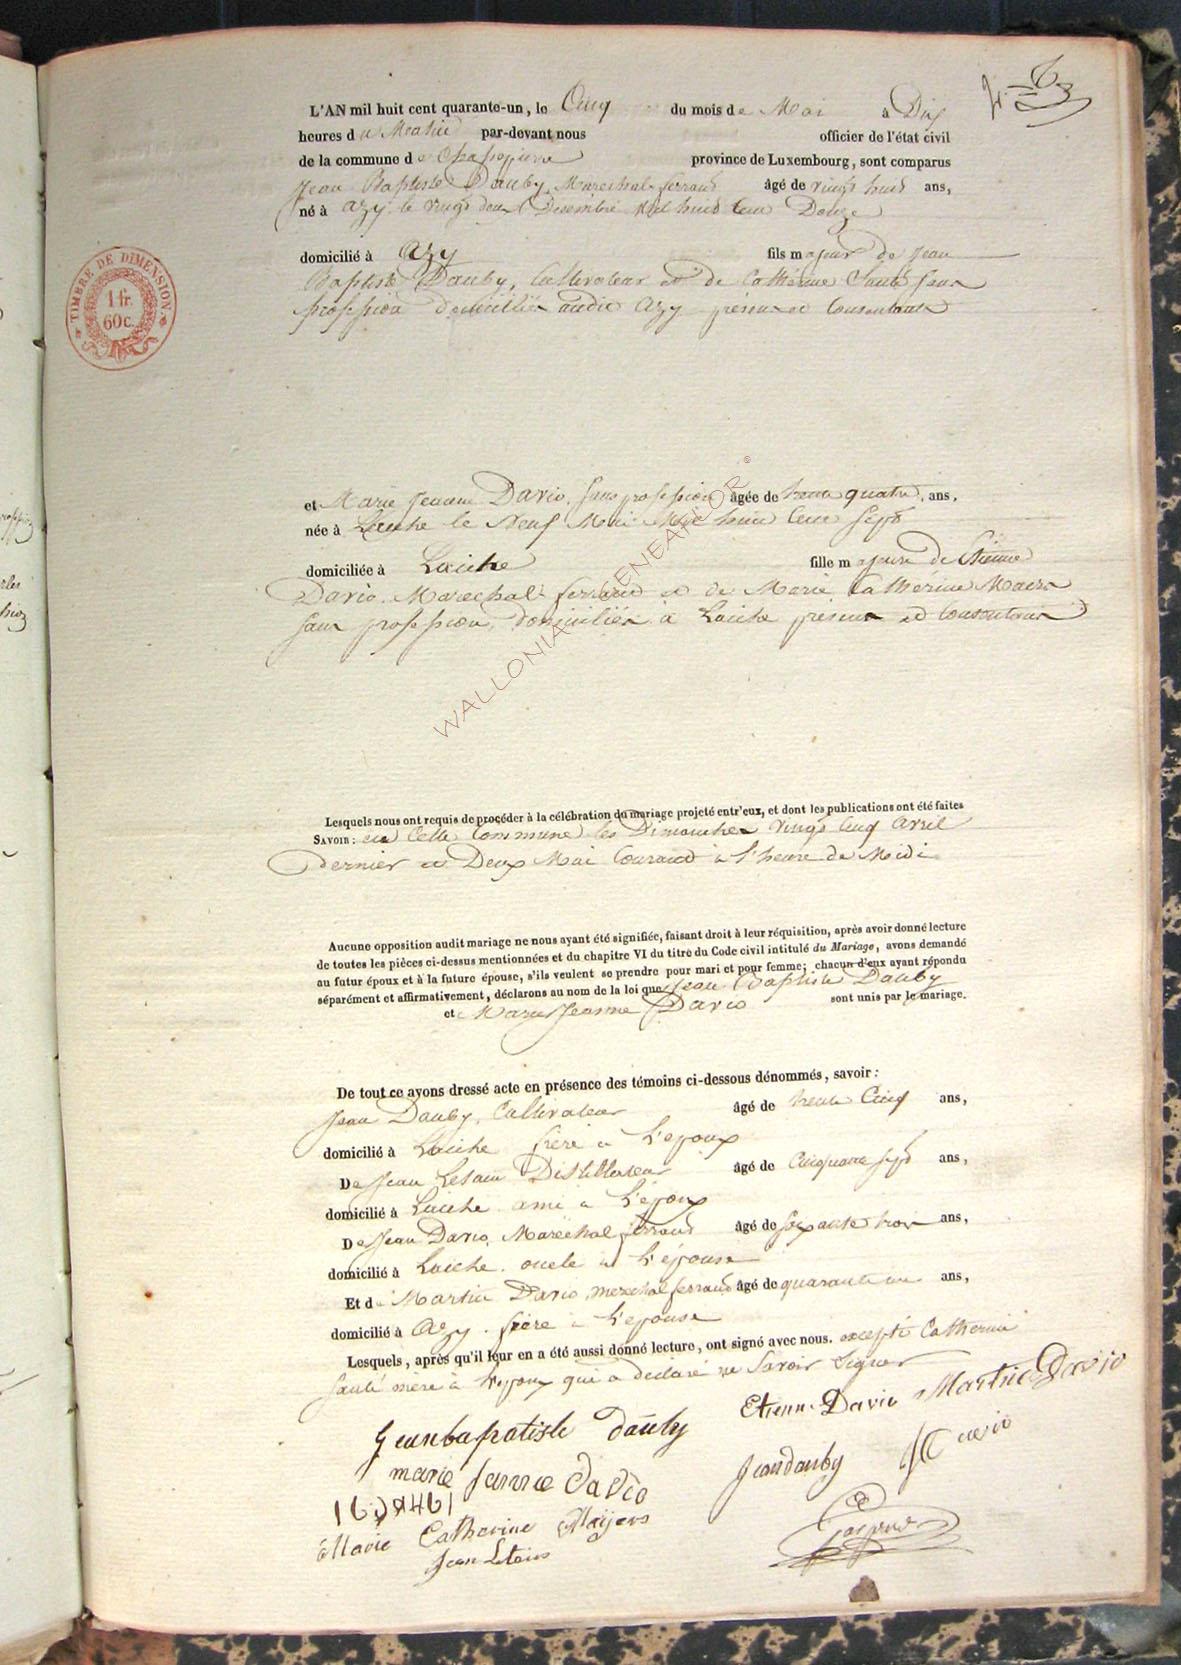 L'AN mil huit cent quarante-un, le Cinq du mois de Mai à Dix
heures du Matin par-devant nous officier de l'état civil
de la commune de Chassepierre province de Luxembourg, sont comparus
Jean Baptiste Dauby, Marechal ferrand âgé de vingt huit ans,
né à Azy le vingt deux Decembre Mil huit Cent Douze
domicilié à Azy fils majeur de Jean
Baptiste Dauby, Cultivateur et de Catherine Santé sans
profession domiciliés audit Azy présent et Consentants
TIMBRE DE DIMENSION
1 fr.
60c.
et Marie Jeanne Davio, sans profession âgée de trente quatre, ans,
née à Laiche le Neuf Mai Mil huit Cent Sept
domiciliée à Laiche fille majeure de Etienne
Davio, Marechal ferrand et de Marie Catherine
sans profession, domiciliés à Laiche présent et Consentant
WALLONIA GENEAFLOR ©
Lesquels nous ont requis de procéder à la célébration du mariage projeté entr'eux, et dont les publications ont été faites
SAVOIR : en Cette Commune les Dimanches vingt Cinq Avril
dernier et Deux Mai Courant à l'heure de Midi
Aucune opposition audit mariage ne nous ayant été signifiée, faisant droit à leur réquisition, après avoir donné lecture
de toutes les pièces ci-dessus mentionnées et du chapitre VI du titre du Code civil intitulé du Mariage, avons demandé
au futur époux et à la future épouse, s'ils veulent se prendre pour mari et pour femme; chacun d'eux ayant répondu
séparément et affirmativement, déclarons au nom de la loi que Jean Baptiste Dauby
et Marie Jeanne Davio sont unis par le mariage.
De tout ce ayons dressé acte en présence des témoins ci-dessous dénommés, savoir :
Jean Dauby, Cultivateur âgé de trente Cinq ans,
domicilié à Laiche frère à L'epoux
De Jean Distillateur âgé de Cinquante sept ans,
domicilié à Laiche ami à L'époux
De Jean Davio, Maréchal ferrand âgé de soixante trois ans,
domicilié à Laiche. oncle à L'épouse
Et de Martin Davio, Marechal ferrand âgé de quarante un ans,
domicilié à Azy. frère à L'epouse
Lesquels, après qu'il leur en a été aussi donné lecture, ont signé avec nous. excepté Catherine
Santé mère à L'epoux qui a declaré ne Savoir Signer
Etienne Davio Martin Davio
Jeanbapatiste dauby
Jean dauby
marie Jannne davio
Marie Catherine Maijers